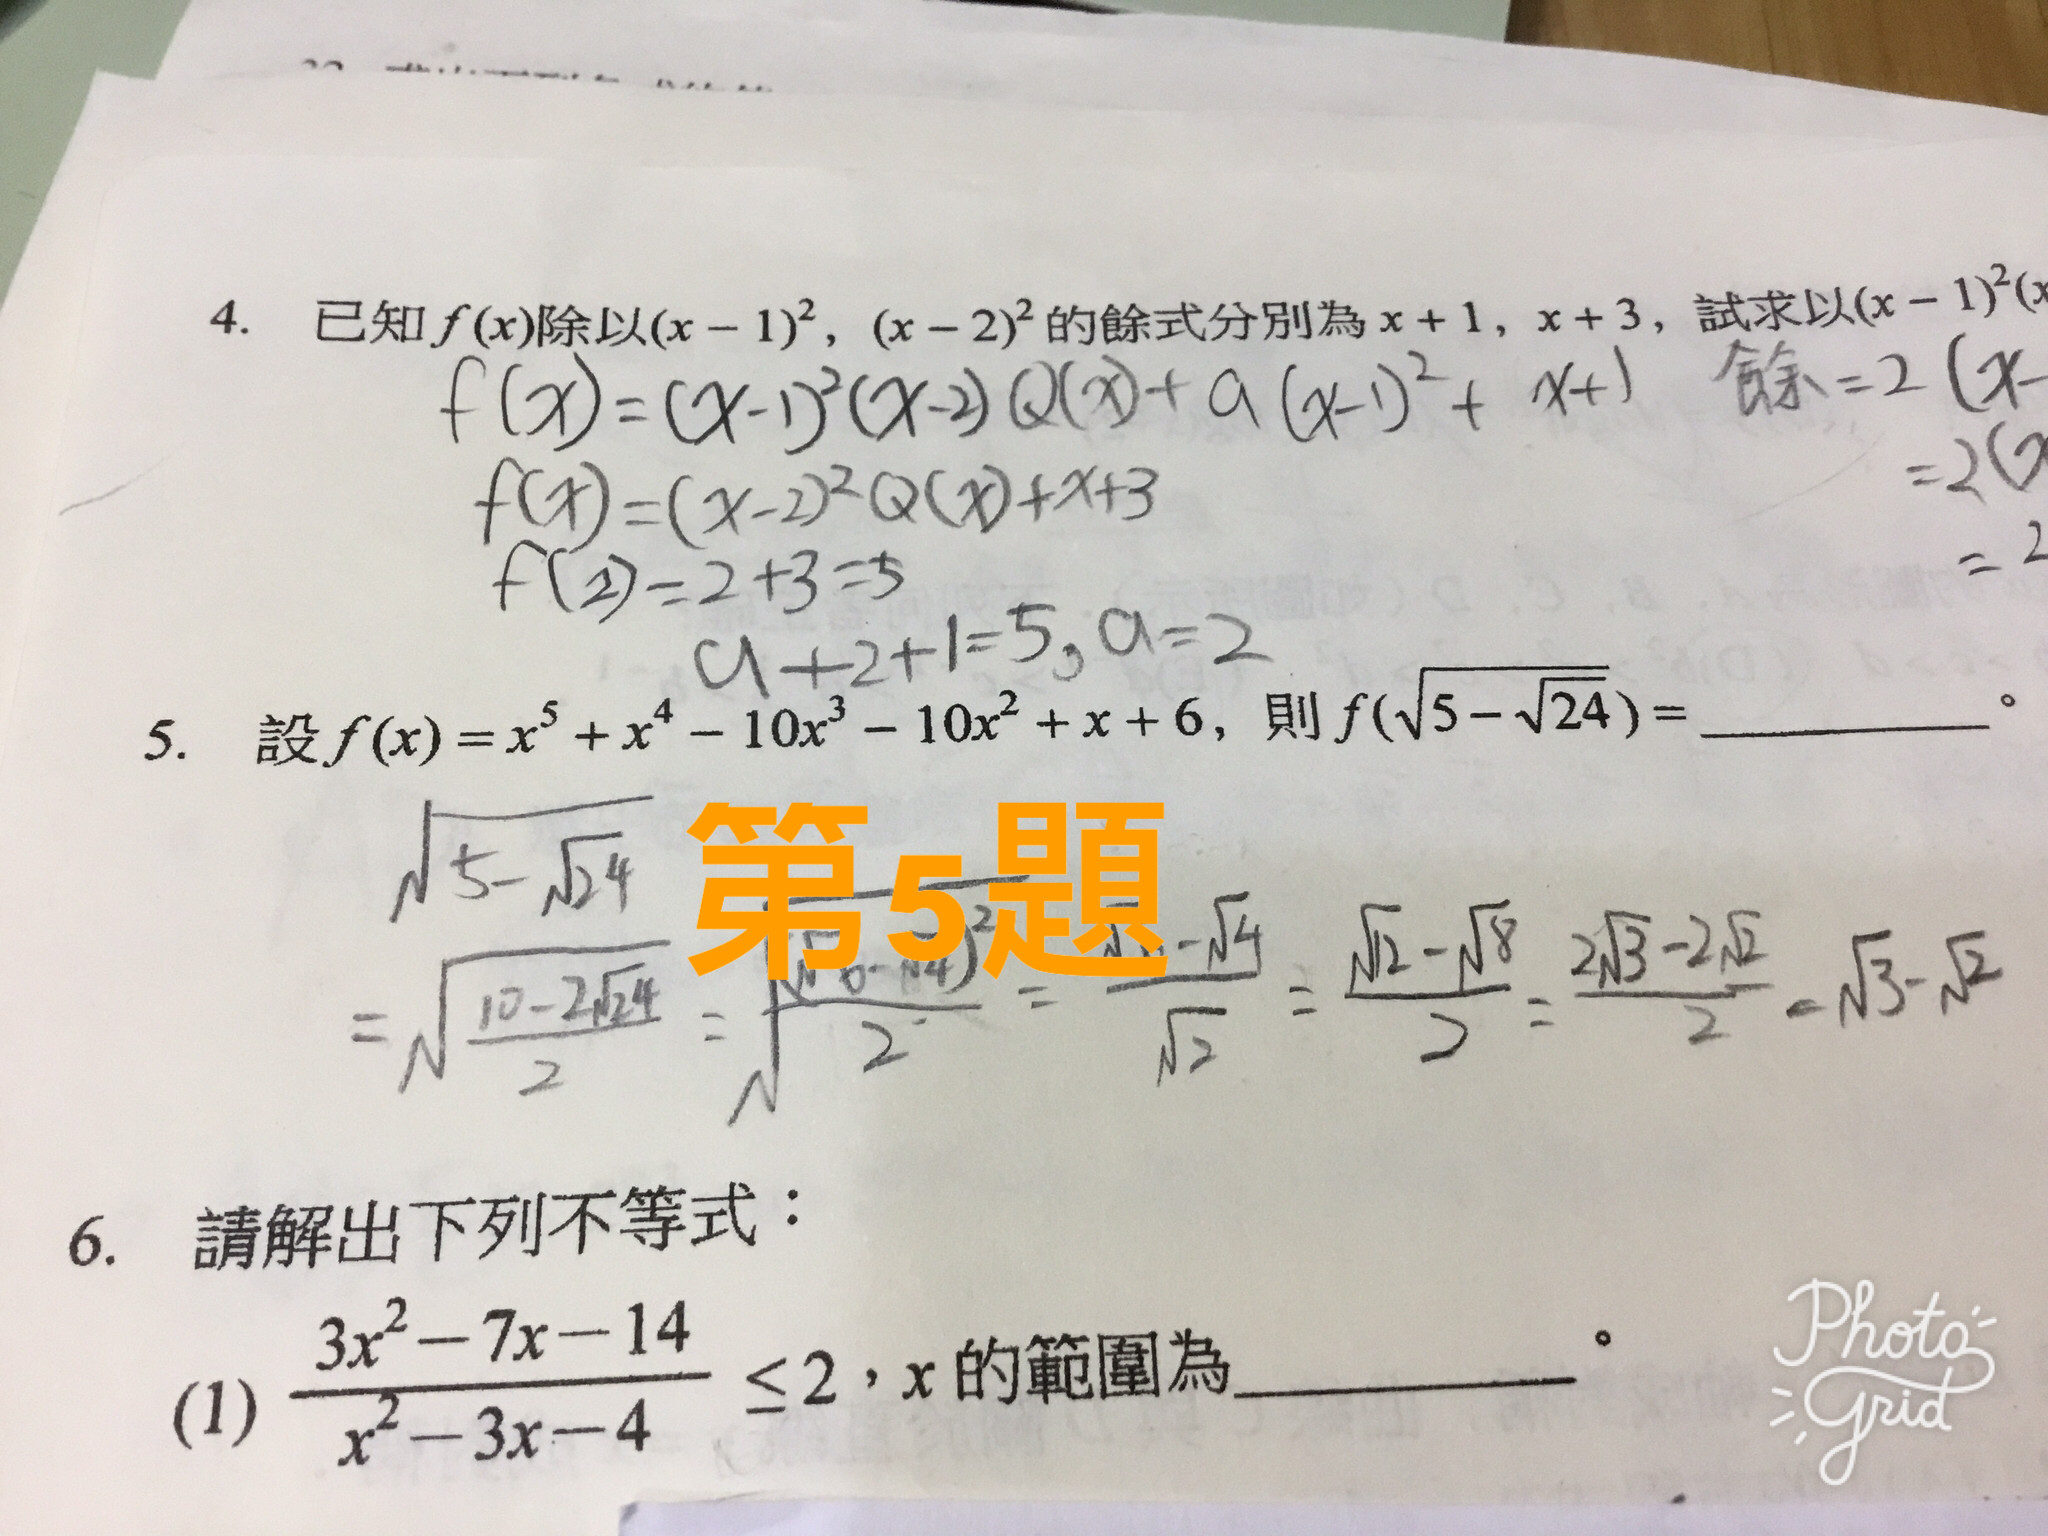 4. 已知 f(x)除以(x − 1)², (x − 2)² 的餘式分別為 x + 1, x + 3, 試求以(x − 1)²(x
f(x)=(x-1)²(x-2)Q(x)+a(x-1)²+x+1
餘=2(x-
f(x)=(x-2)²Q(x)+x+3
=2(x
f(2)=2+3=5
=2
a+2+1=5, a=2
5. 設 f(x) = x⁵ + x⁴ − 10x³ − 10x² + x + 6, 則 f(√(5 − √24)) = ________。
√(5-√24)
第5題
=√((10-2√24)/2) = √(( )²/2) = ( -√4)/√2 = (√12-√8)/2 = (2√3-2√2)/2 = √3-√2
6. 請解出下列不等式：
(1) (3x² − 7x − 14)/(x² − 3x − 4) ≤ 2，x 的範圍為________。
Photo
Grid